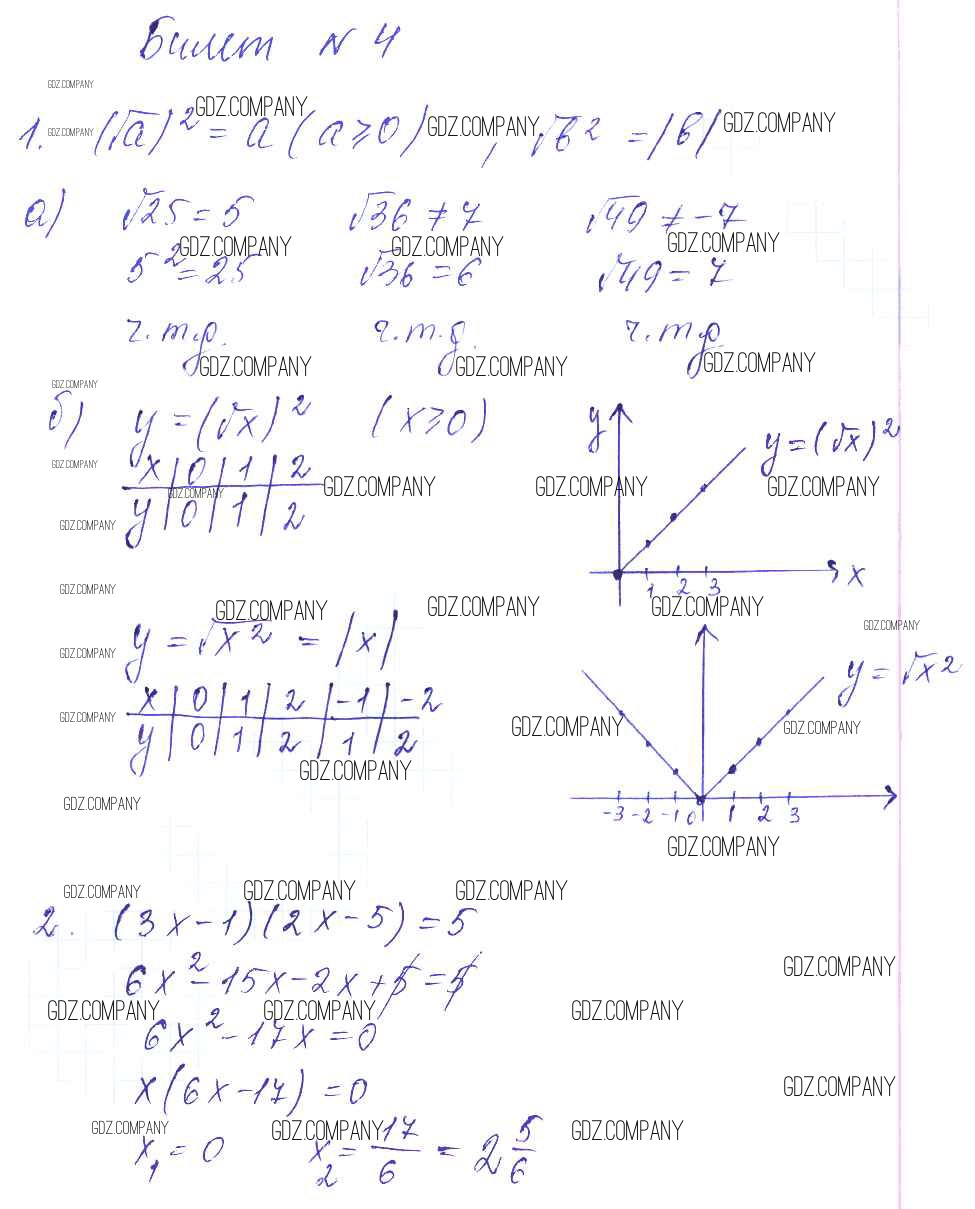 Билет N 4
GDZ.COMPANY
GDZ.COMPANY
1. GDZ.COMPANY (√a)² = a (a ≥ 0) GDZ.COMPANY , √b² = |b| GDZ.COMPANY
а) √25 = 5 √36 ≠ 7 √49 ≠ -7
GDZ.COMPANY GDZ.COMPANY GDZ.COMPANY
5² = 25 √36 = 6 √49 = 7
ч.т.д. ч.т.д. ч.т.д.
GDZ.COMPANY GDZ.COMPANY GDZ.COMPANY
GDZ.COMPANY
б) y = (√x)² (x ≥ 0)
y y = (√x)²
x | 0 | 1 | 2
GDZ.COMPANY GDZ.COMPANY GDZ.COMPANY GDZ.COMPANY GDZ.COMPANY
y | 0 | 1 | 2
GDZ.COMPANY
1 2 3 x
GDZ.COMPANY
GDZ.COMPANY GDZ.COMPANY GDZ.COMPANY
GDZ.COMPANY
y = √x² = |x|
GDZ.COMPANY
y = √x²
x | 0 | 1 | 2 | -1 | -2
GDZ.COMPANY GDZ.COMPANY GDZ.COMPANY
y | 0 | 1 | 2 | 1 | 2
GDZ.COMPANY
GDZ.COMPANY
-3 -2 -1 0 1 2 3
GDZ.COMPANY
GDZ.COMPANY GDZ.COMPANY GDZ.COMPANY
2. (3x - 1)(2x - 5) = 5
GDZ.COMPANY
6x² - 15x - 2x + 5 = 5
GDZ.COMPANY GDZ.COMPANY GDZ.COMPANY
6x² - 17x = 0
x(6x - 17) = 0
GDZ.COMPANY
GDZ.COMPANY GDZ.COMPANY GDZ.COMPANY
x₁ = 0 x₂ = 17/6 = 2 5/6